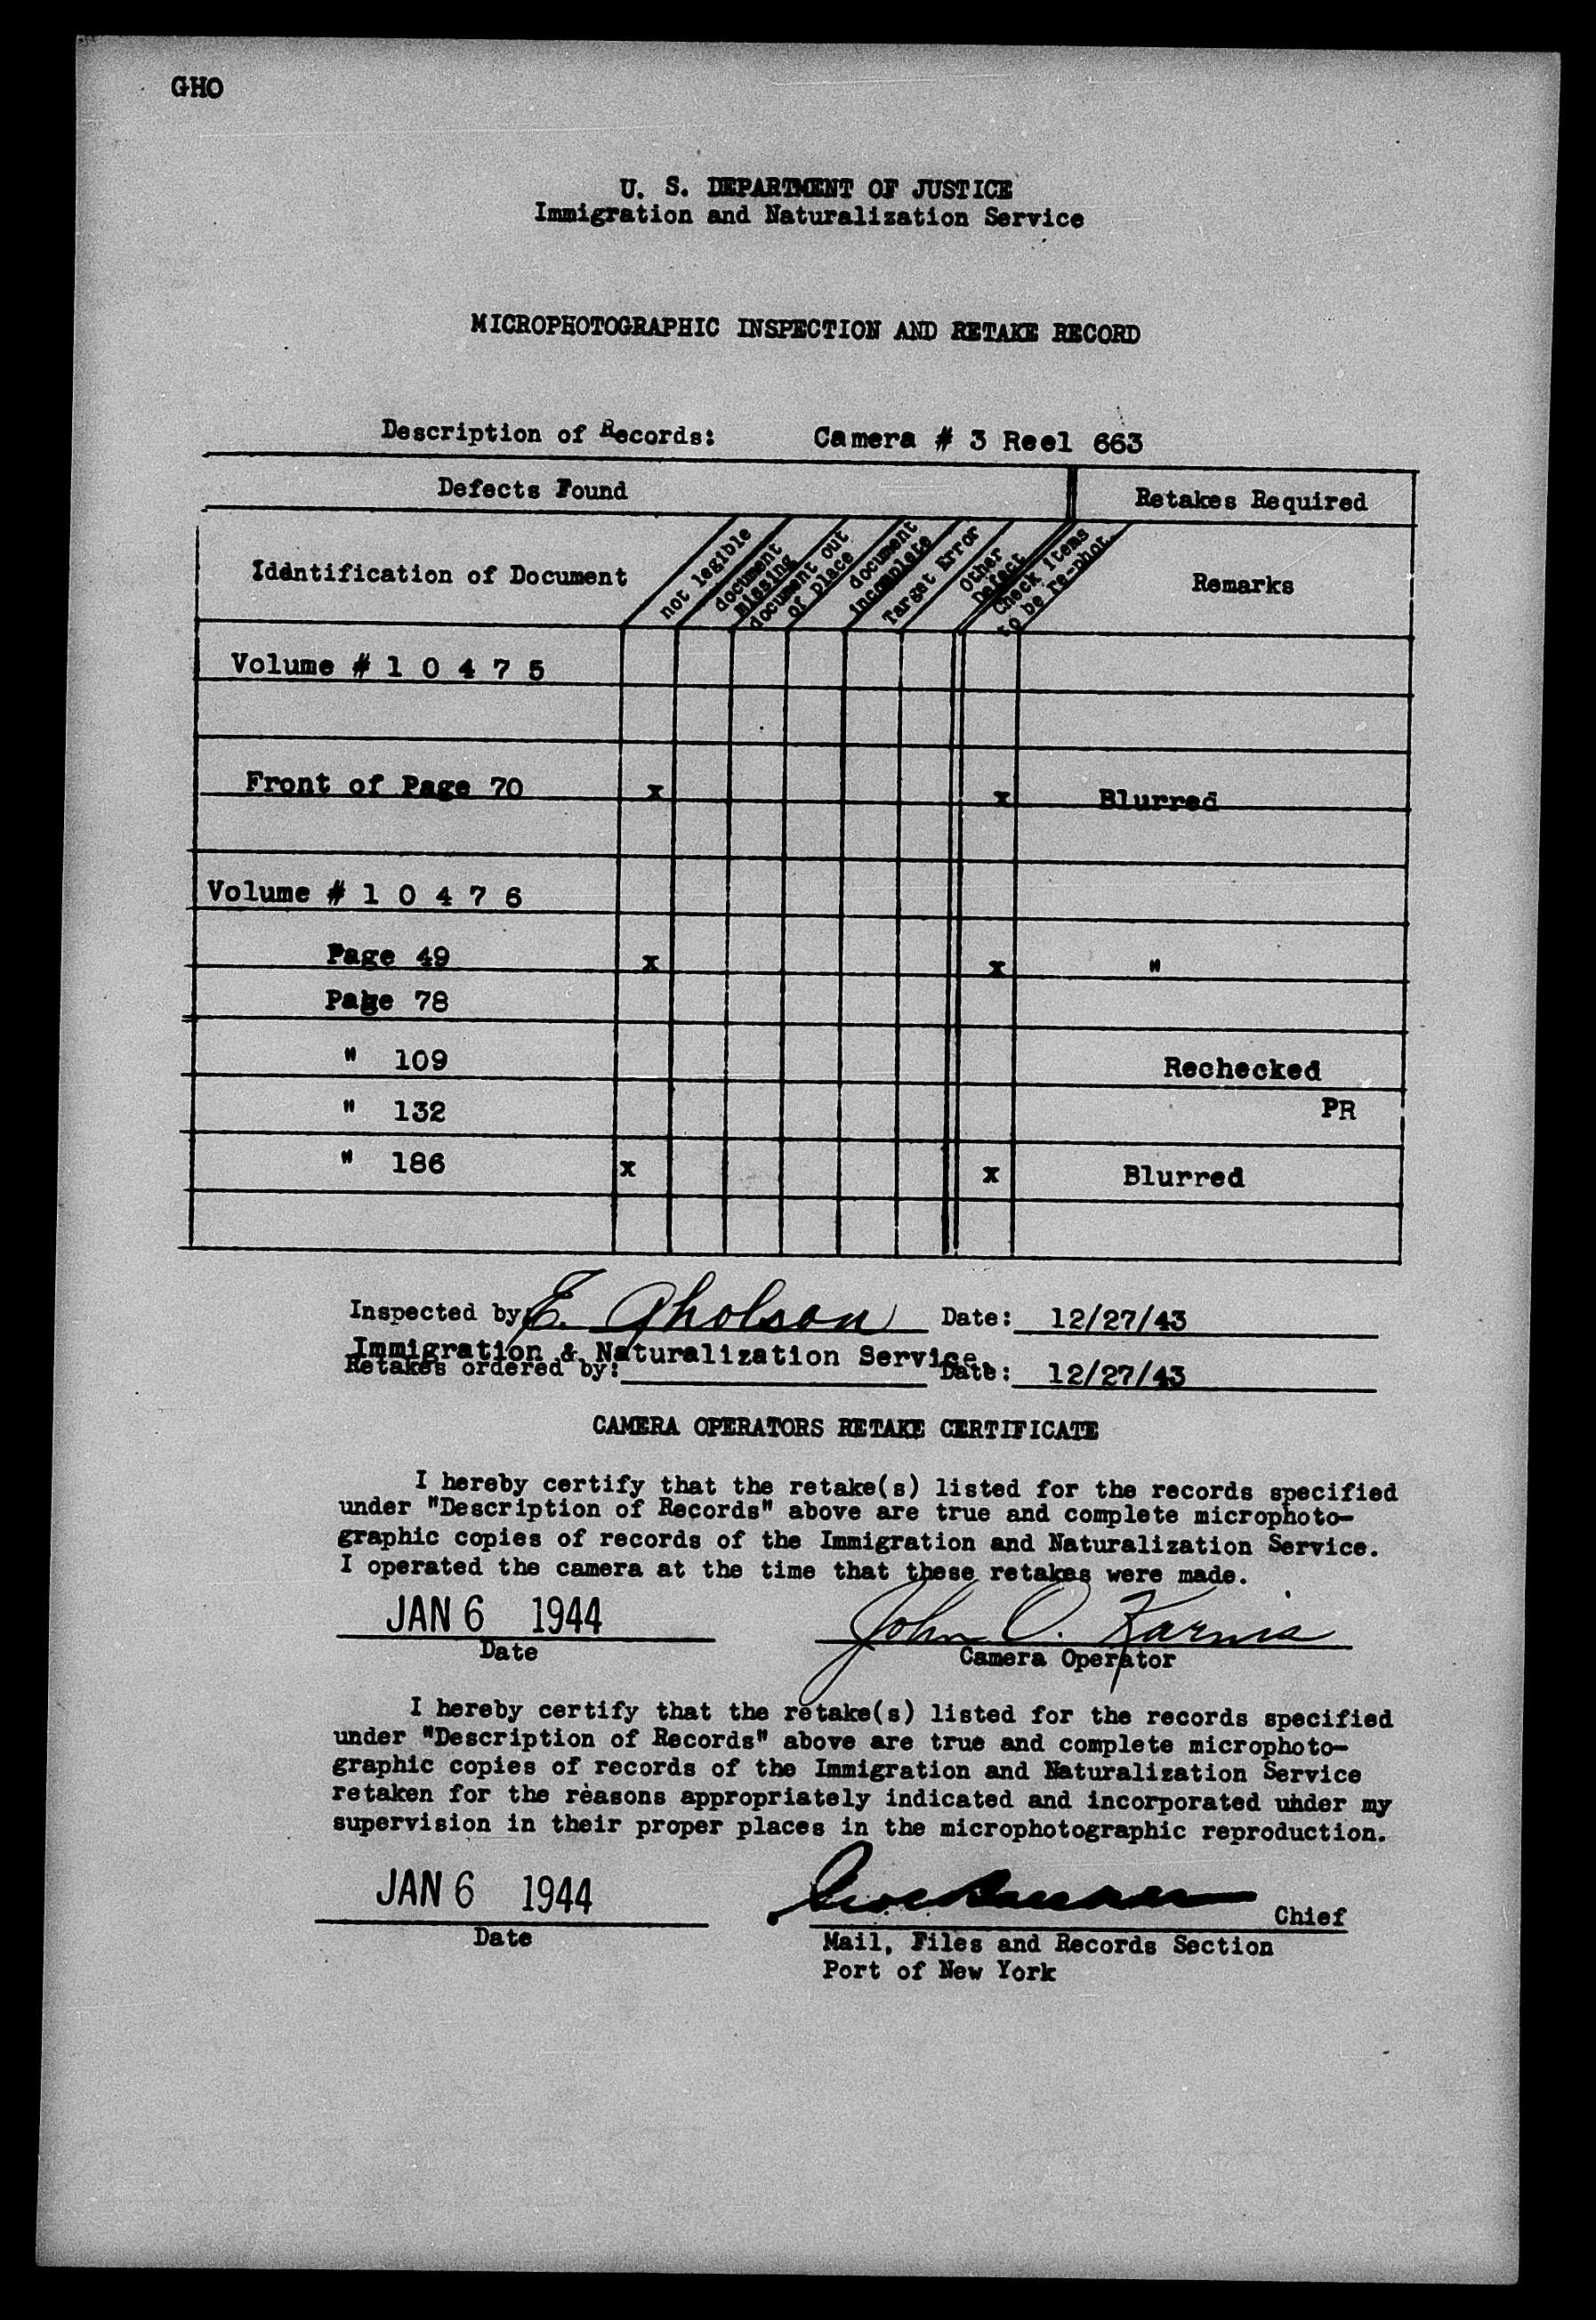 GHO
U. S. DEPARTMENT OF JUSTICE
Immigration and Naturalization Service
MICROPHOTOGRAPHIC INSPECTION AND RETAKE RECORD
Description of Records: Camera # 3 Reel 663
Defects Found Retakes Required
Identification of Document not legible document missing document out of place document incomplete Target Error Other Defect Check items to be re-phot. Remarks
Volume # 1 0 4 7 5
Front of Page 70 x x Blurred
Volume # 1 0 4 7 6
Page 49 x x "
Page 78
" 109 Rechecked
" 132 PR
" 186 x x Blurred
Inspected by: E. Gholson Date: 12/27/43
Immigration & Naturalization Service.
Retakes ordered by: Date: 12/27/43
CAMERA OPERATORS RETAKE CERTIFICATE
I hereby certify that the retake(s) listed for the records specified
under "Description of Records" above are true and complete microphoto-
graphic copies of records of the Immigration and Naturalization Service.
I operated the camera at the time that these retakes were made.
JAN 6 1944 John O. Karnis
Date Camera Operator
I hereby certify that the retake(s) listed for the records specified
under "Description of Records" above are true and complete microphoto-
graphic copies of records of the Immigration and Naturalization Service
retaken for the reasons appropriately indicated and incorporated under my
supervision in their proper places in the microphotographic reproduction.
JAN 6 1944 Chief
Date Mail, Files and Records Section
Port of New York